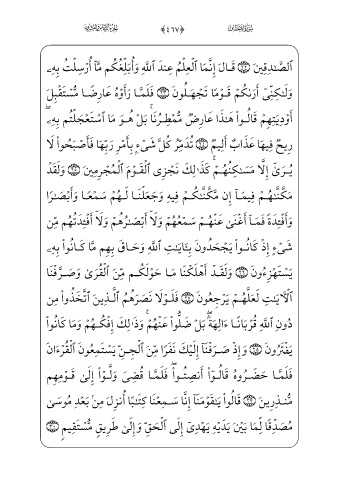 سورة الأحقاف ﴿٤٦٧﴾ الجزء السادس والعشرون
ٱلصَّٰدِقِينَ ۝ قَالَ إِنَّمَا ٱلْعِلْمُ عِندَ ٱللَّهِ وَأُبَلِّغُكُم مَّآ أُرْسِلْتُ بِهِۦ
وَلَٰكِنِّىٓ أَرَىٰكُمْ قَوْمًا تَجْهَلُونَ ۝ فَلَمَّا رَأَوْهُ عَارِضًا مُّسْتَقْبِلَ
أَوْدِيَتِهِمْ قَالُوا۟ هَٰذَا عَارِضٌ مُّمْطِرُنَا ۚ بَلْ هُوَ مَا ٱسْتَعْجَلْتُم بِهِۦ ۖ
رِيحٌ فِيهَا عَذَابٌ أَلِيمٌ ۝ تُدَمِّرُ كُلَّ شَىْءٍۭ بِأَمْرِ رَبِّهَا فَأَصْبَحُوا۟ لَا
يُرَىٰٓ إِلَّا مَسَٰكِنُهُمْ ۚ كَذَٰلِكَ نَجْزِى ٱلْقَوْمَ ٱلْمُجْرِمِينَ ۝ وَلَقَدْ
مَكَّنَّٰهُمْ فِيمَآ إِن مَّكَّنَّٰكُمْ فِيهِ وَجَعَلْنَا لَهُمْ سَمْعًا وَأَبْصَٰرًا
وَأَفْـِٔدَةً فَمَآ أَغْنَىٰ عَنْهُمْ سَمْعُهُمْ وَلَآ أَبْصَٰرُهُمْ وَلَآ أَفْـِٔدَتُهُم مِّن
شَىْءٍ إِذْ كَانُوا۟ يَجْحَدُونَ بِـَٔايَٰتِ ٱللَّهِ وَحَاقَ بِهِم مَّا كَانُوا۟ بِهِۦ
يَسْتَهْزِءُونَ ۝ وَلَقَدْ أَهْلَكْنَا مَا حَوْلَكُم مِّنَ ٱلْقُرَىٰ وَصَرَّفْنَا
ٱلْـَٔايَٰتِ لَعَلَّهُمْ يَرْجِعُونَ ۝ فَلَوْلَا نَصَرَهُمُ ٱلَّذِينَ ٱتَّخَذُوا۟ مِن
دُونِ ٱللَّهِ قُرْبَانًا ءَالِهَةًۢ ۖ بَلْ ضَلُّوا۟ عَنْهُمْ ۚ وَذَٰلِكَ إِفْكُهُمْ وَمَا كَانُوا۟
يَفْتَرُونَ ۝ وَإِذْ صَرَفْنَآ إِلَيْكَ نَفَرًا مِّنَ ٱلْجِنِّ يَسْتَمِعُونَ ٱلْقُرْءَانَ
فَلَمَّا حَضَرُوهُ قَالُوٓا۟ أَنصِتُوا۟ ۖ فَلَمَّا قُضِىَ وَلَّوْا۟ إِلَىٰ قَوْمِهِم
مُّنذِرِينَ ۝ قَالُوا۟ يَٰقَوْمَنَآ إِنَّا سَمِعْنَا كِتَٰبًا أُنزِلَ مِنۢ بَعْدِ مُوسَىٰ
مُصَدِّقًا لِّمَا بَيْنَ يَدَيْهِ يَهْدِىٓ إِلَى ٱلْحَقِّ وَإِلَىٰ طَرِيقٍ مُّسْتَقِيمٍ ۝